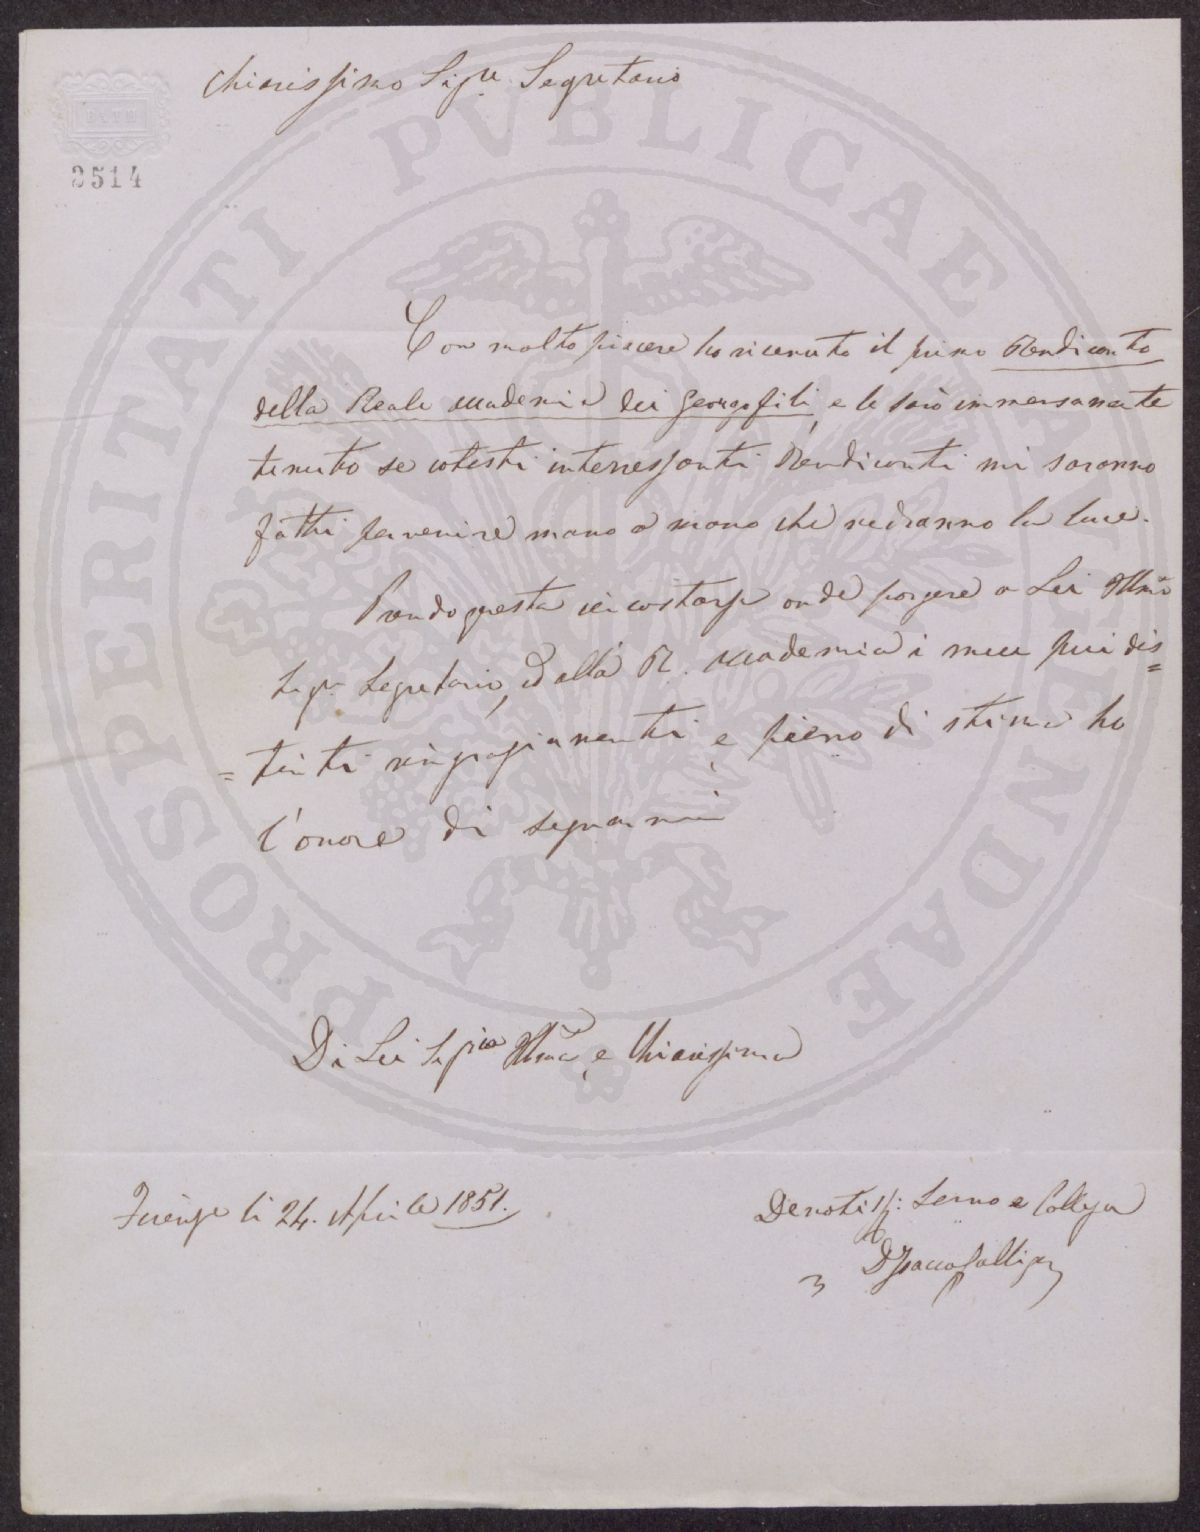 Chiarissimo Sigre Segretario
BATH
2514
PROSPERITATI PVBLICAE AVGENDAE
Con molto piacere ho ricevuto il primo Rendiconto
della Reale Accademia dei Georgofili, e le sarò immensamente
tenuto se cotesti interessanti Rendiconti mi saranno
fatti pervenire mano a mano che vedranno la luce.
Prendo questa onde porgere a Lei Illmo
Sigr Segretario, ed alla R. Accademia i miei piu dis=
=tinti ringraziamenti, e pieno di stima ho
l'onore di segnarmi
Di Lei Sigria Illma, e Chiarissima
Firenze li 24. Aprile 1851.
Devotiss: Servo e Collega
D